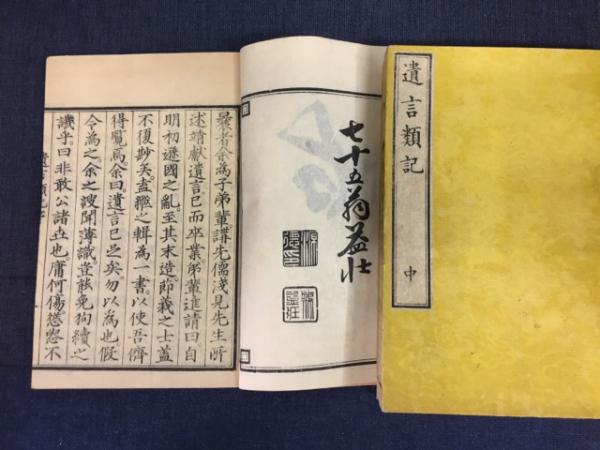 遺言類記
中
七十五翁益壮
曩者余為子弟輩講先儒淺見先生所
述靖献遺言已而卒業弟輩進請曰自
明初遜國之亂至其末造節義之士蓋
不復尠矣盍之輯為一書以使吾儕
得覧焉余曰遺言已矣勿以為也假
令為之余之謏聞薄識豈能免狗續之
譏乎曰非敢公諸世也庸何傷慫慂不
遺言類記